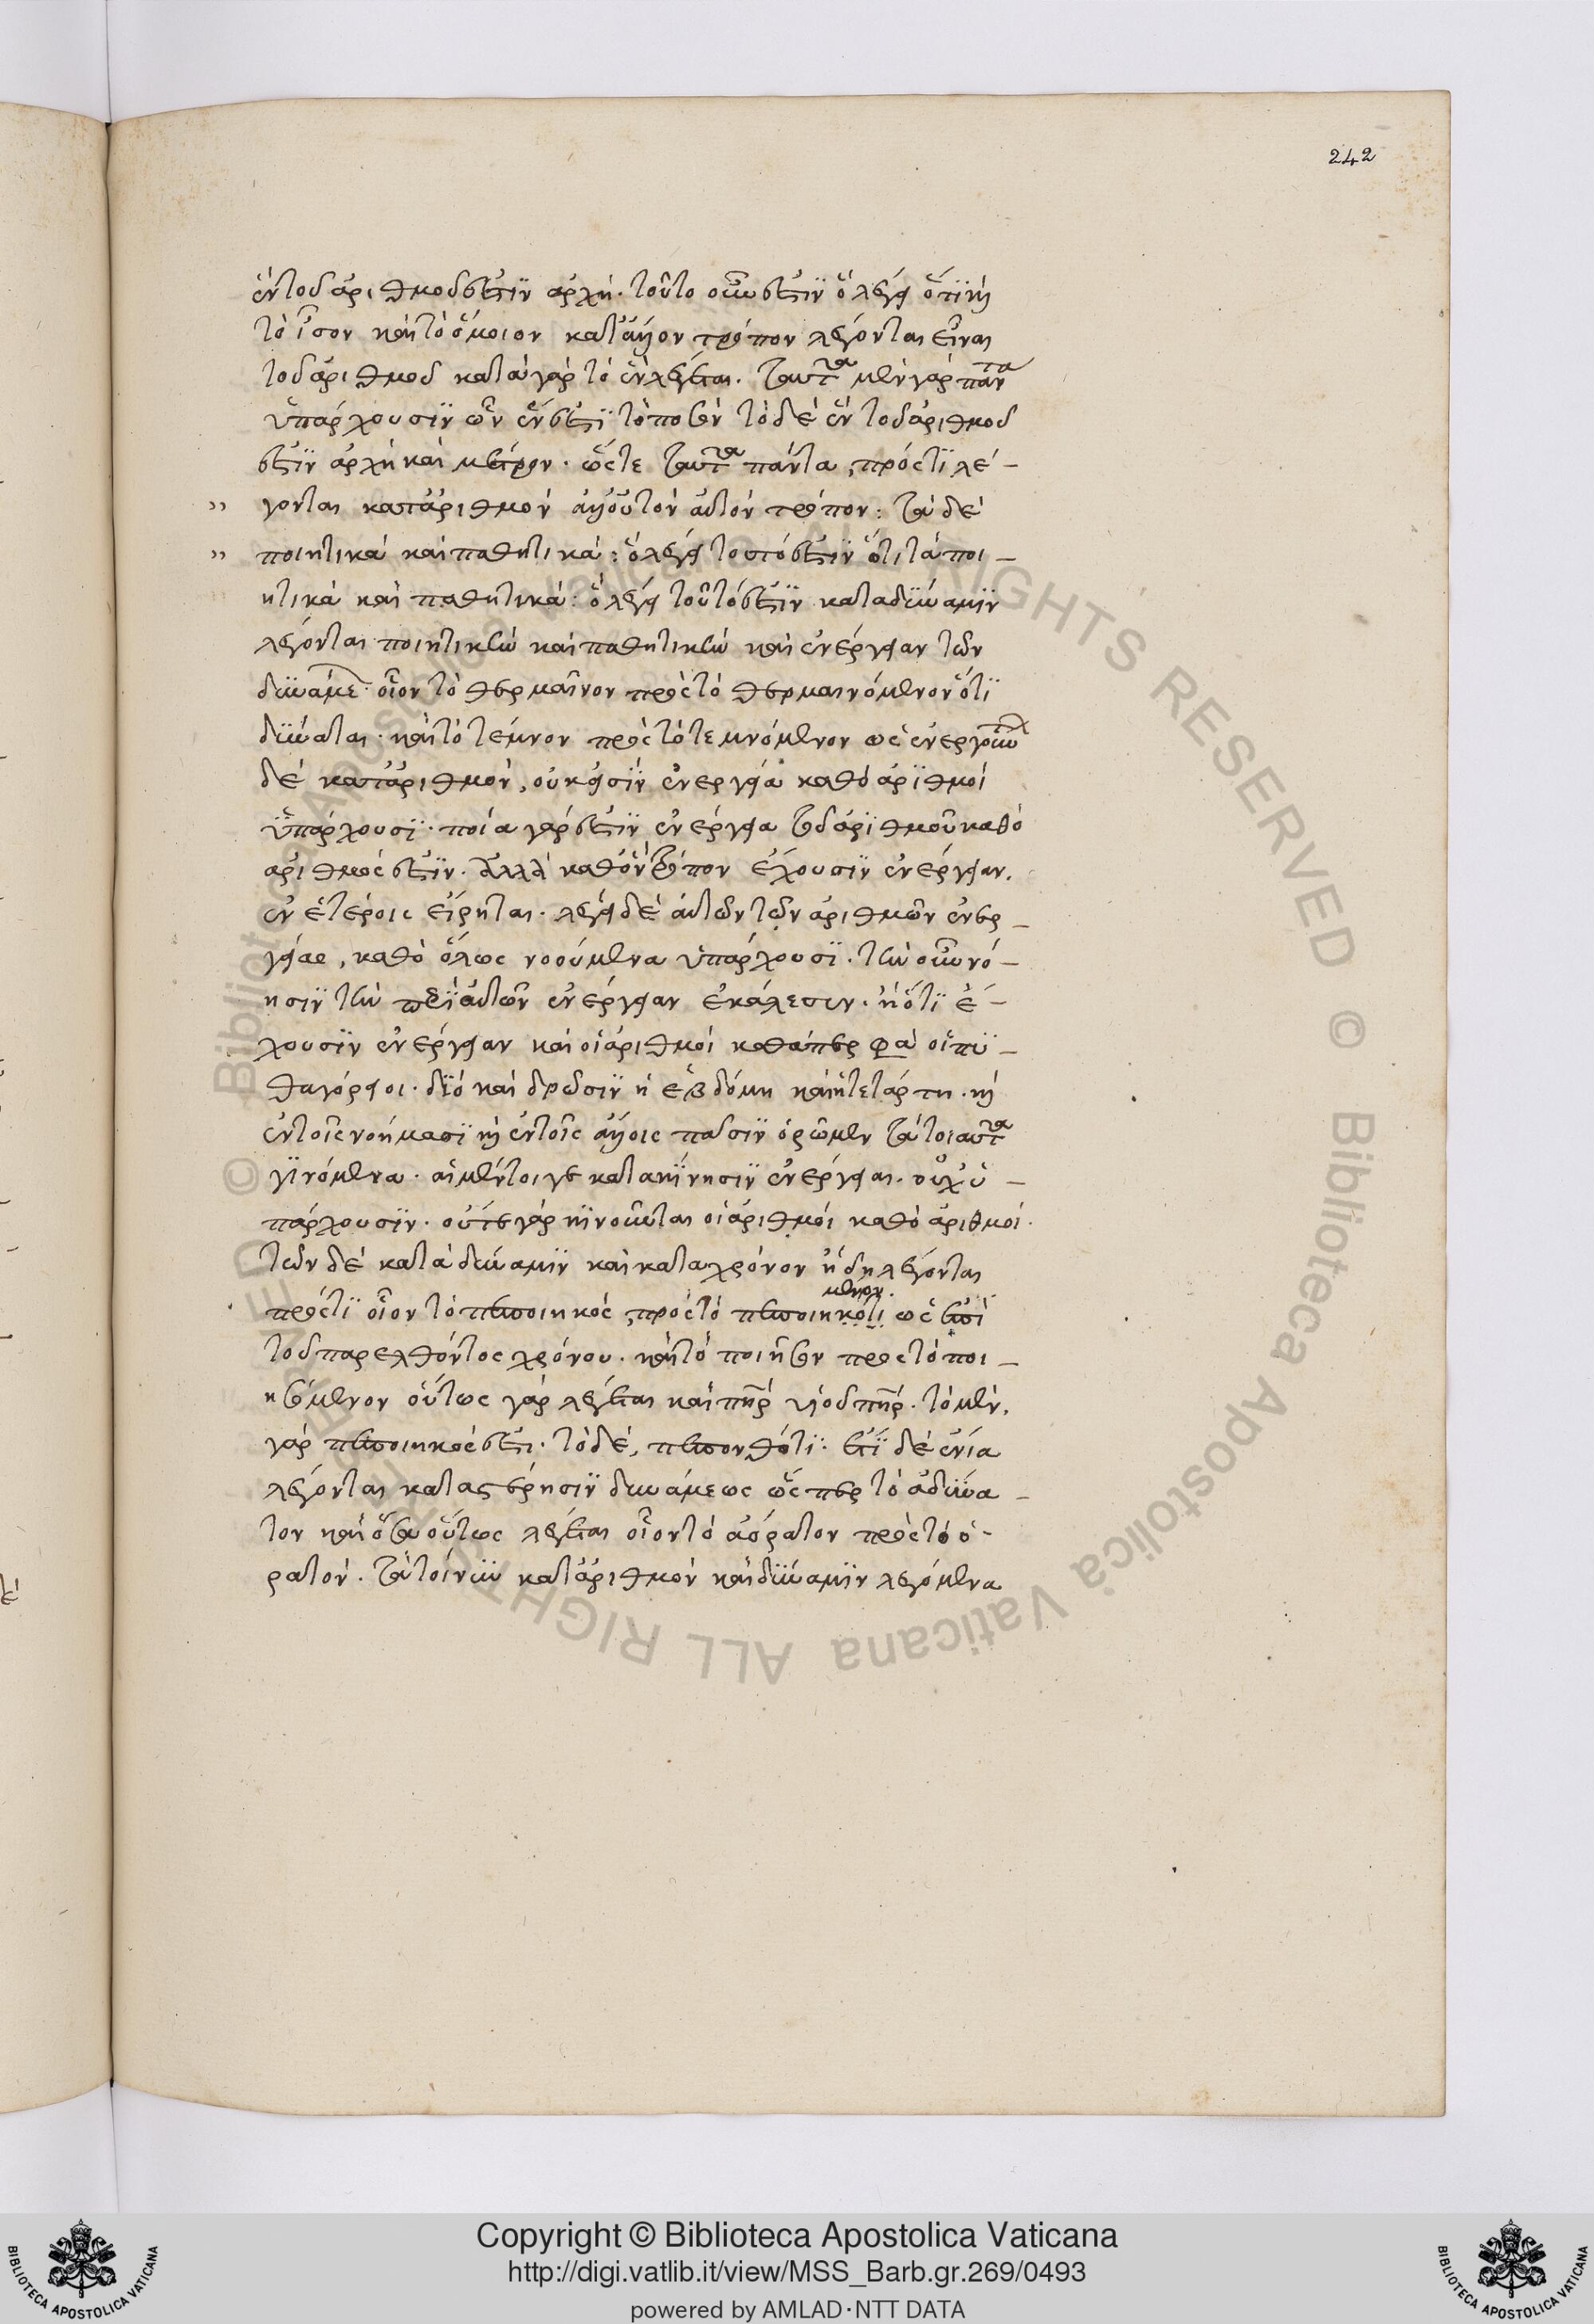 242
ἓν τοῦ ἀριθμοῦ ἐστὶν ἀρχή· τοῦτο οὖν ἐστὶν ὃ λέγει ὅτι καὶ
τὸ ἴσον καὶ τὸ ὅμοιον κατ' ἄλλον τρόπον λέγονται εἶναι
τοῦ ἀριθμοῦ κατὰ γὰρ τὸ ἓν λέγεται. ταῦτα μὲν γὰρ πάντα
ὑπάρχουσιν ὧν ἕν ἐστι τὸ ποσὸν τὸ δὲ ἓν τοῦ ἀριθμοῦ
ἐστὶν ἀρχὴ καὶ μέτρον. ὥστε ταῦτα πάντα πρός τι λέ-
» γονται κατ' ἀριθμὸν ἀλλ' οὐ τὸν αὐτὸν τρόπον: τὰ δὲ
» ποιητικὰ καὶ παθητικά: ὃ λέγει τοῦτό ἐστιν ὅτι τὰ ποι-
ητικὰ καὶ παθητικά: ὃ λέγει τοῦτό ἐστιν κατὰ δύναμιν
λέγονται ποιητικὴν καὶ παθητικὴν καὶ ἐνέργειαν τῶν
δυνάμε οἷον τὸ θερμαῖνον πρὸς τὸ θερμαινόμενον ὅτι
δύναται. καὶ τὸ τέμνον πρὸς τὸ τεμνόμενον ὡς ἐνεργοῦν
δὲ κατ' ἀριθμὸν, οὐκ εἰσὶν ἐνεργεία καθὸ ἀριθμοὶ
ὑπάρχουσι. ποία γάρ ἐστιν ἐνέργεια τοῦ ἀριθμοῦ καθὸ
ἀριθμός ἐστιν. ἀλλὰ καθ' ὃν τρόπον ἔχουσιν ἐνέργειαν.
ἐν ἑτέροις εἴρηται. λέγει δὲ αὐτῶν τῶν ἀριθμῶν ἐνερ-
γείας, καθὸ ὅλως νοούμενα ὑπάρχουσι. τὴν οὖν νό-
ησιν τὴν περὶ αὐτῶν ἐνέργειαν ἐκάλεσεν. ἢ ὅτι ἔ-
χουσιν ἐνέργειαν καὶ οἱ ἀριθμοὶ καθάπερ φα οἱ πυ-
θαγόρειοι. διὸ καὶ δρῶσιν ἡ ἑβδόμη καὶ ἡ τετάρτη. καὶ
ἐν τοῖς νοήμασι καὶ ἐν τοῖς ἄλλοις πᾶσιν ὁρῶμεν τὰ τοιαῦτα
γινόμενα. αἱ μέντοι γε κατὰ κίνησιν ἐνέργειαι. οὐχ ὑ-
πάρχουσιν. οὔτε γὰρ κινοῦνται οἱ ἀριθμοὶ καθὸ ἀριθμοί.
τῶν δὲ κατὰ δύναμιν καὶ κατὰ χρόνον ἤδη λέγονται
μενον.
πρός τι οἷον τὸ πεποιηκὸς πρὸς τὸ πεποιηκότι ὡς ἐπὶ
τοῦ παρελθόντος χρόνου. καὶ τὸ ποιῆσον πρὸς τὸ ποι-
ησόμενον οὕτως γὰρ λέγεται καὶ πηρ υἱοῦ πηρ. τὸ μὲν.
γὰρ πεποιηκός ἐστι. τὸ δὲ, πεπονθότι. ἔτι δὲ ἔνια
λέγονται κατὰ στέρησιν δυνάμεως ὥσπερ τὸ ἀδύνα-
τον καὶ ὅσα οὕτως λέγεται οἷον τὸ ἀόρατον πρὸς τὸ ὁ-
ρατόν. τὰ τοίνυν κατ' ἀριθμὸν καὶ δύναμιν λεγόμενα
Copyright © Biblioteca Apostolica Vaticana
http://digi.vatlib.it/view/MSS_Barb.gr.269/0493
powered by AMLAD·NTT DATA